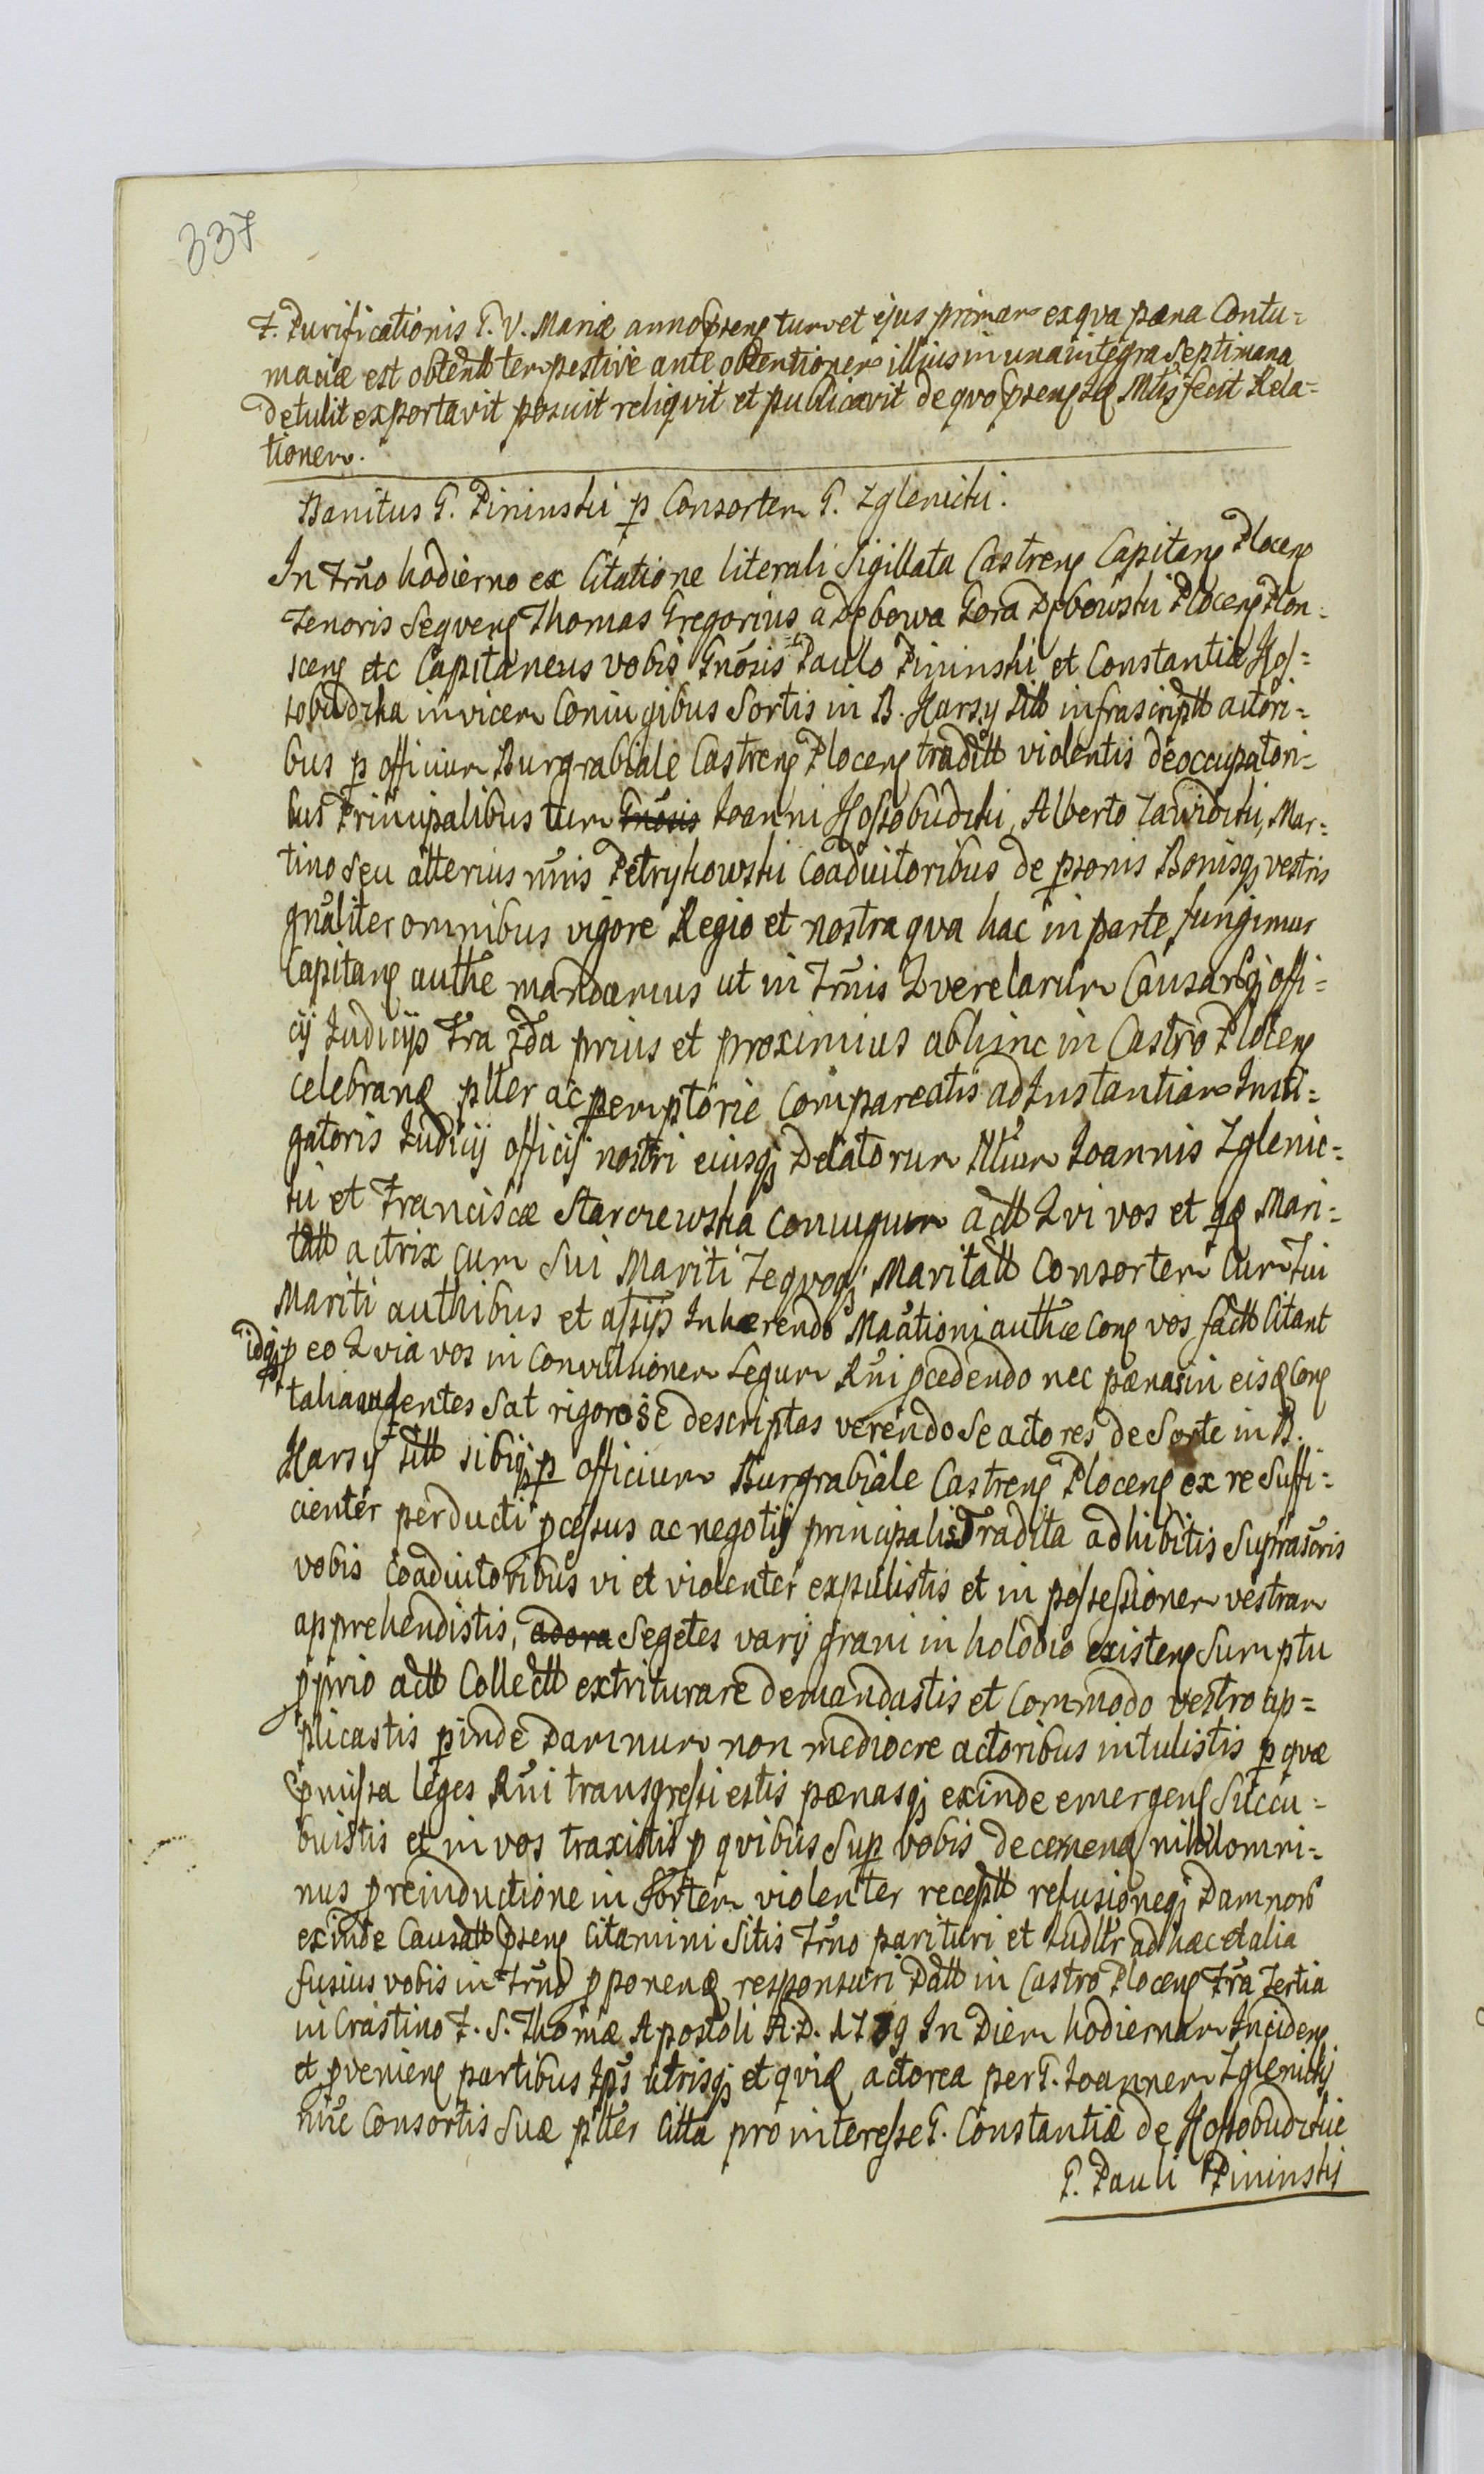 337
F. Purificationis B. V. Mariæ anno pꝛseng tum et ejus primam ex qva pæna Contu=
maciæ est obtentt tempestive ante obtentionem illius in una integra Septimana
detulit exportavit posuit reliqvit et publicavit de qvo pꝛseng Mtis fecit Rela=
tionem.
Banitus G. Pininski p Consortem G. Zglenicki.
In Trño hodierno ex Citatione literali Sigillata Castreng Capitang Ploceng
Tenoris Seqveng Thomas Gregorius a Dębowa Gora Dębowski Ploceng Plon=
sceng etc Capitaneus vobis Gnosis Paulo Pininski et Constantiæ Kos=
sobudzka invicem Coniugibus Sortis in B. Karsy Sitt infrascriptt actori=
bus p officium Burgrabiale Castreng Ploceng traditt violentis deoccupatori=
bus Principalibus tum Gnosis Ioanni Kossobudzki, Alberto Zawidzki, Mar=
tino seu alterius nñis Petrykowski Coadiutoribus de psonis Bonisq vestris
gñaliter omnibus vigore Regio et nostra qva hac in parte fungimur
Capitang authe mandamus ut in Trñis Qverelarum Causarq offi=
cij Iudicijs Fra 2da prius et proximius abhinc in Castro Ploceng
celebrang plter ac pemptorie Compareatis ad Instantiam Insti=
gatoris Iudicij officij nostri eiusq Delatorum Ioannis Zglenic=
ki et Franciscæ Starorewska coniugum actt Qvi vos et qæ Mari=
tatt actrix cum Sui Mariti Teqvoq Maritatt Consortem Cum Tui
Mariti authibus et assijs Inhærendo Maationi authæ Cong vos factt Citant
idq p eo Qvia vos in Convulsionem Legum Rñi pcedendo nec pænas in eisd Cong
talia audentes Sat rigorose descriptas verendo Se actores de Sorte in B.
Karsy Sitt sibiq p officium Burgrabiale Castreng Ploceng ex re Suffi=
cienter perducti pcessus ac negotij principalis Tradita adhibitis Suprasoris
vobis Coadiutoribus vi et violenter expulistis et in possessionem vestram
apprehendistis, adora Segetes varij grani in holodio existeng Sumptu
pprio actt Collectt extriturare demandastis et Commodo vestro ap=
plicastis pinde Damnum non mediocre actoribus intulistis p qvæ
pmissa leges Rñi transgressi estis pænasq exinde emergeng Succu=
buistis et in vos traxistis p qvibus Sup vobis decerneng nihilomi=
nus p reinductione in Sortem violenter receptt refusioneq Damnoꝝ
exinde Causatt pꝛseng Citamini Sitis Trño parituri et Iudltr ad hæc et alia
fusius vobis in Trño pponeng responsuri Datt in Castro Ploceng Fra Tertia
in Crastino F. S. Thomæ Apostoli A. D. 1739 In Diem hodiernam Incideng
et pveniens partibus Ips utrisq et qvia actorea per G. Ioannem Zglenicki
nñe Consortis Suæ plter Citta pro interesse G. Constantiæ de Kossobudzkie
G. Pauli Pininski